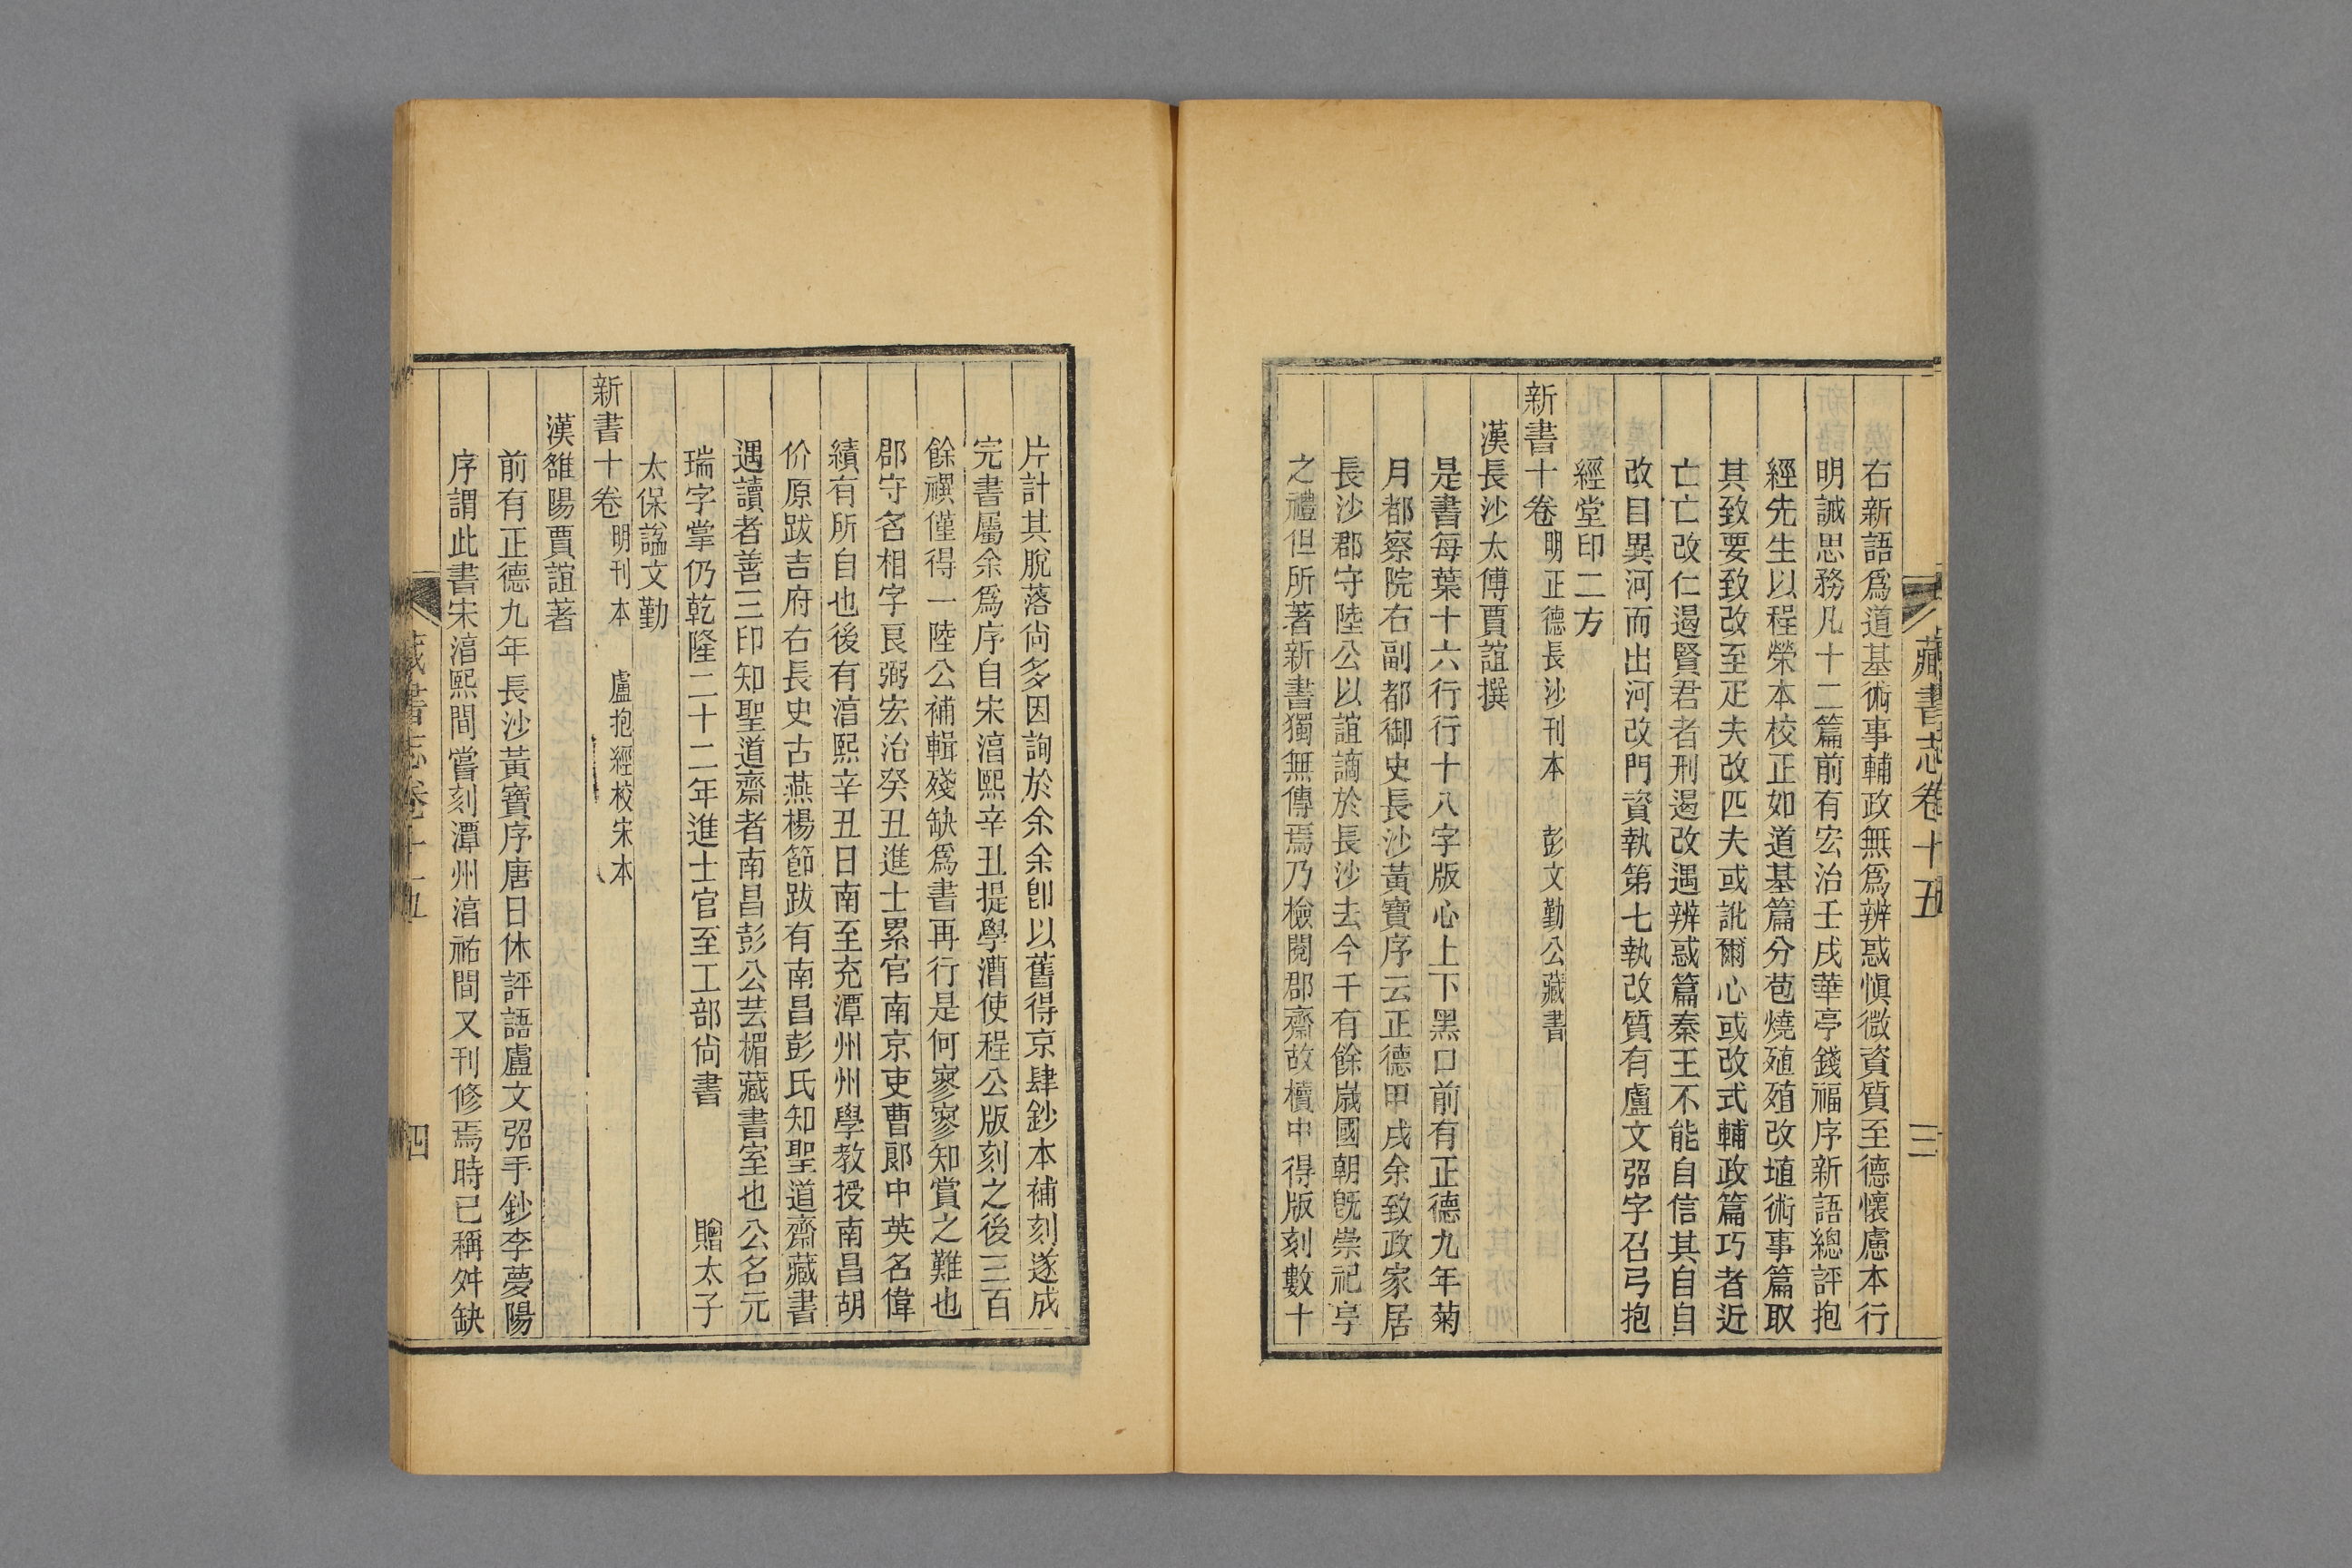 藏書志卷十五
三
右新語爲道基術事輔政無爲辨惑愼微資質至德懷慮本行
明誡思務凡十二篇前有宏治壬戌華亭錢福序新語總評抱
經先生以程榮本校正如道基篇分苞燒殖殖改埴術事篇取
其致要致改至疋夫改匹夫或訛爾心或改式輔政篇巧者近
亡亡改仁遏賢君者刑遏改遇辨惑篇秦王不能自信其自自
改目異河而出河改門資執第七執改質有盧文弨字召弓抱
經堂印二方
新書十卷 明正德長沙刊本 彭文勤公藏書
漢長沙太傅賈誼撰
是書每葉十六行行十八字版心上下黑口前有正德九年菊
月都察院右副都御史長沙黃寶序云正德甲戌余致政家居
長沙郡守陸公以誼謫於長沙去今千有餘嵗國朝旣崇祀亭
之禮但所著新書獨無傳焉乃檢閱郡齋故櫝中得版刻數十
片計其脫落尙多因詢於余余卽以舊得京肆鈔本補刻遂成
完書屬余爲序自宋湻熙辛丑提學漕使程公版刻之後三百
餘禩僅得一陸公補輯殘缺爲書再行是何寥寥知賞之難也
郡守名相字良弼宏治癸丑進士累官南京吏曹郞中英名偉
績有所自也後有湻熙辛丑日南至充潭州州學教授南昌胡
价原跋吉府右長史古燕楊節跋有南昌彭氏知聖道齋藏書
遇讀者善三印知聖道齋者南昌彭公芸楣藏書室也公名元
瑞字掌仍乾隆二十二年進士官至工部尙書 贈太子
太保諡文勤
新書十卷 明刊本 盧抱經校宋本
漢雒陽賈誼著
前有正德九年長沙黃寶序唐日休評語盧文弨手鈔李夢陽
序謂此書宋湻熙間嘗刻潭州湻祐間又刊修焉時已稱舛缺
藏書志卷十五
四